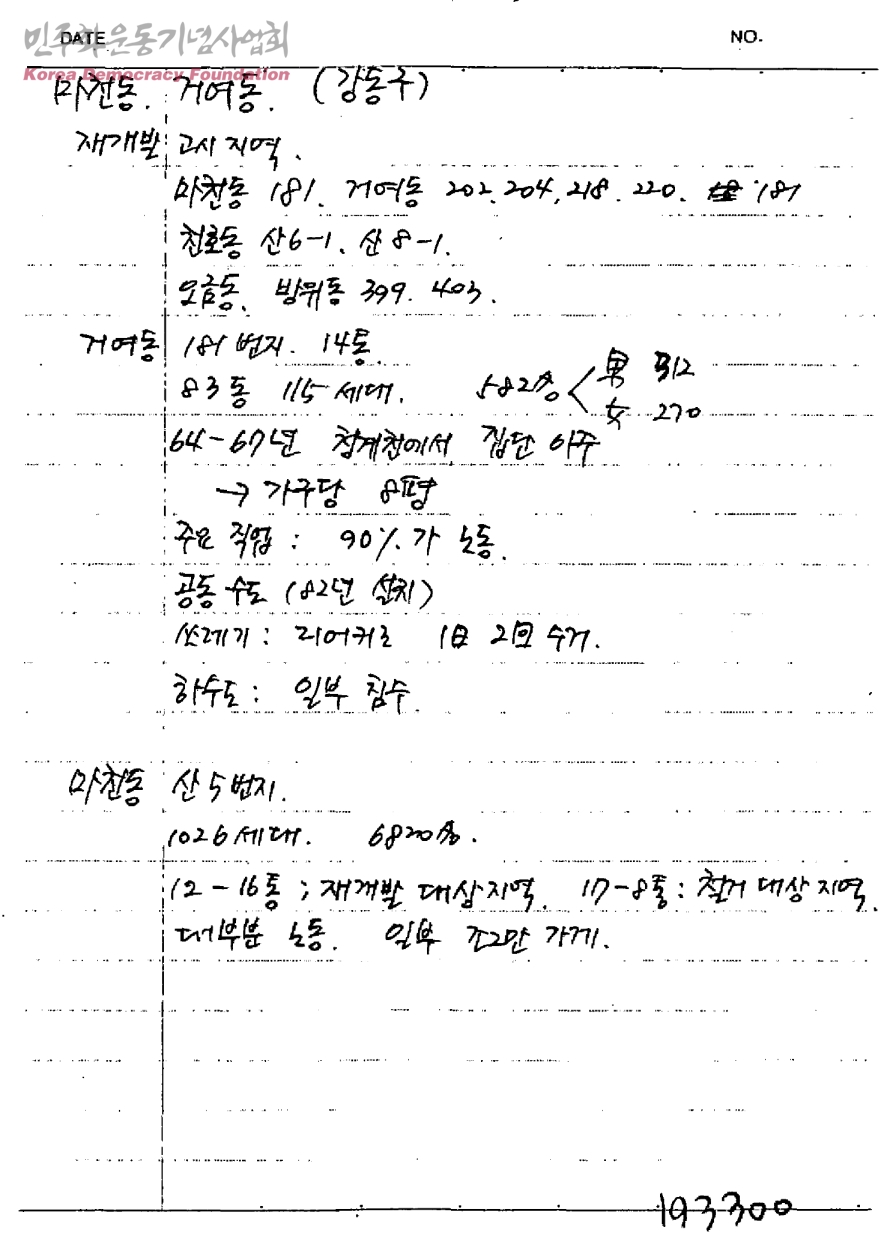 민주화운동기념사업회
Korea Democracy Foundation
DATE NO.
마천동. 거여동. (강동구)
재개발 고시 지역.
마천동 181. 거여동 202. 204, 218. 220. 181
천호동 산6-1. 산8-1.
오금동. 방위동 399. 403.
거여동 181번지. 14통.
83동 115세대. 582名 男 312
女 270
64-67년 청계천에서 집단 이주
→ 가구당 8평
주요 직업 : 90%가 노동.
공동 수도 (82년 설치)
쓰레기 : 리어커로 1日 2回 수거.
하수도 : 일부 침수.
마천동 산5번지.
1026세대. 6820名.
12-16통 ; 재개발 대상지역. 17-8통 : 철거 대상 지역.
대부분 노동. 일부 조그만 가게.
193300